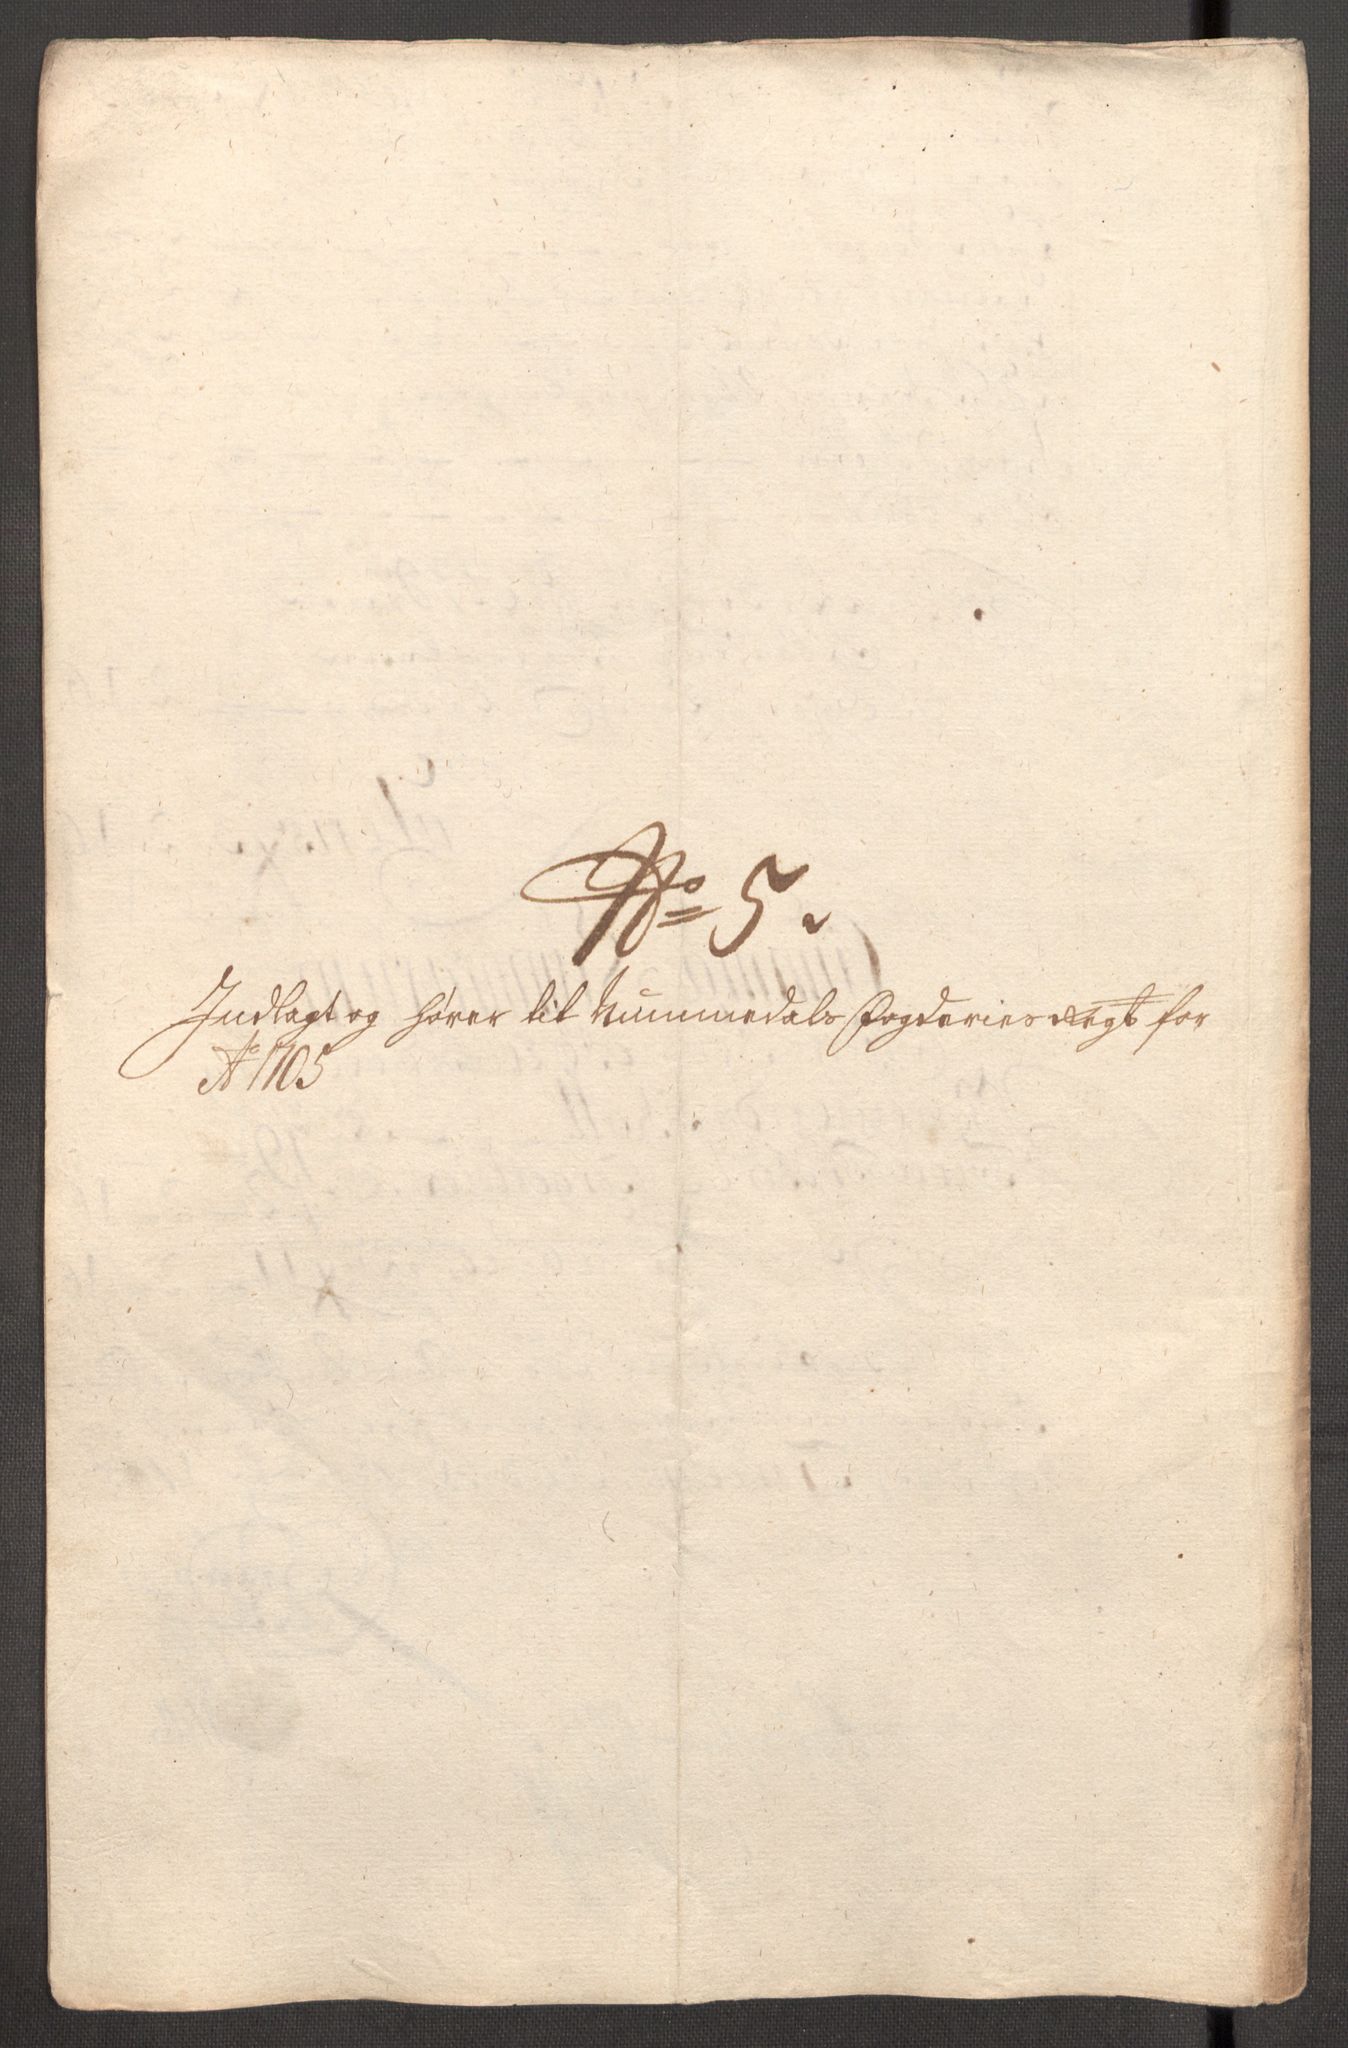 No 5.
Indlagt og hører til Nummedals Fogderies Regt for
Ao 1705